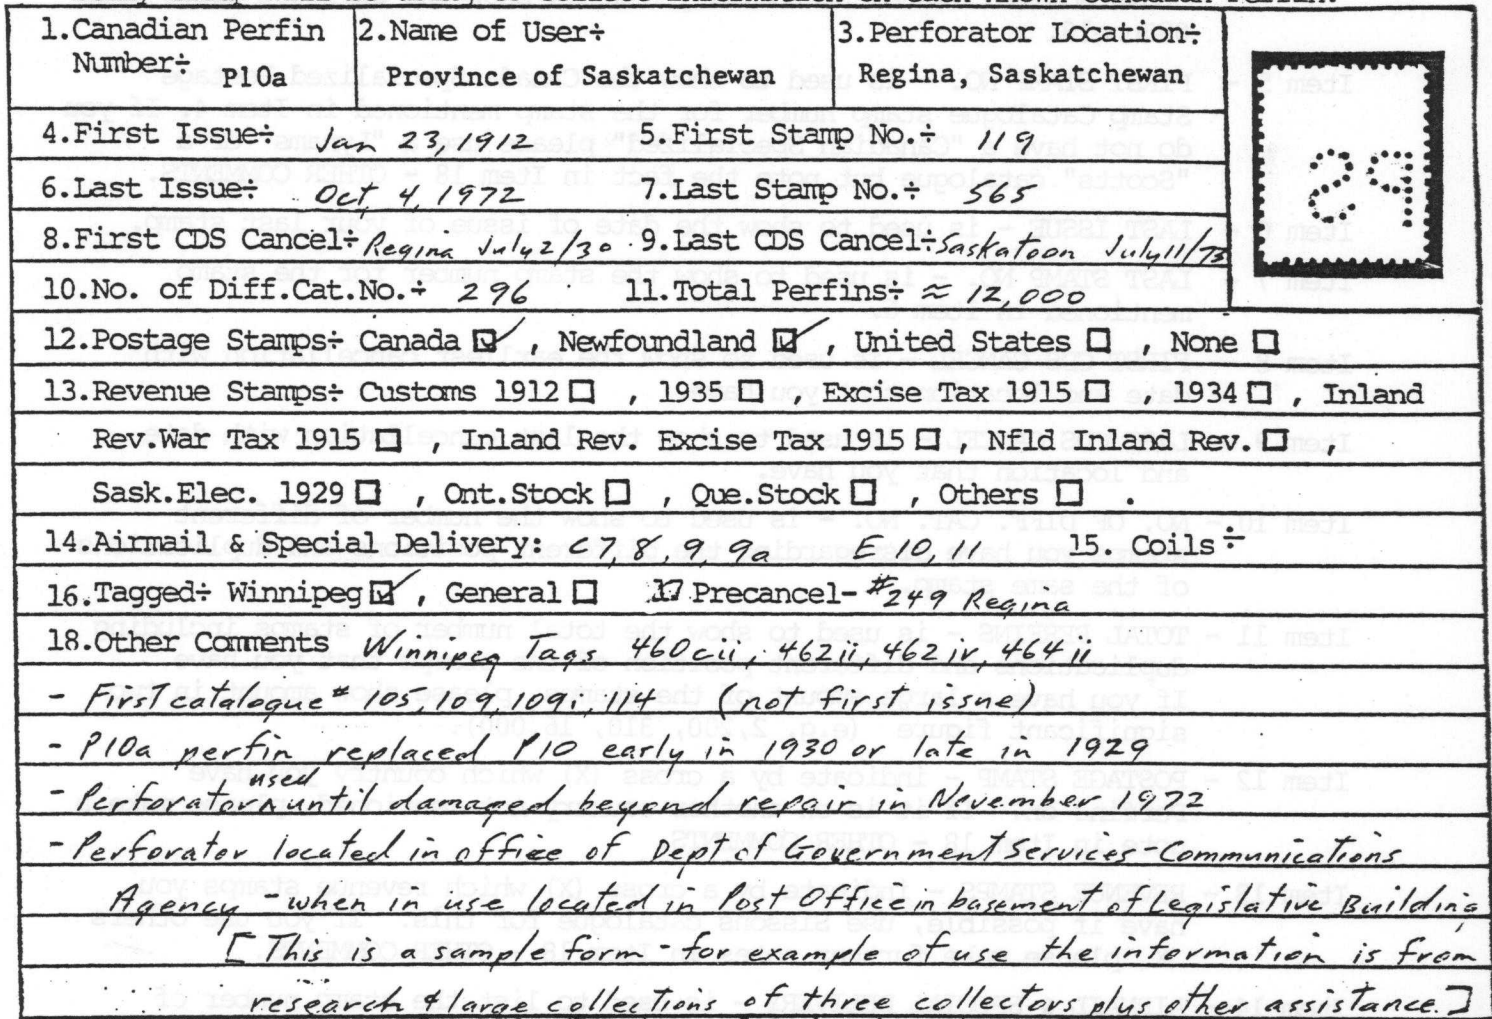 1.Canadian Perfin Number÷ P10a
2.Name of User÷ Province of Saskatchewan
3.Perforator Location÷ Regina, Saskatchewan
4.First Issue÷ Jan 23, 1912 5.First Stamp No.÷ 119
6.Last Issue÷ Oct, 4, 1972 7.Last Stamp No.÷ 565
8.First CDS Cancel÷ Regina July 2/30 9.Last CDS Cancel÷ Saskatoon July 11/73
10.No. of Diff.Cat.No.÷ 296 11.Total Perfins÷ ≈ 12,000
12.Postage Stamps÷ Canada ☑, Newfoundland ☑, United States ☐, None ☐
13.Revenue Stamps÷ Customs 1912 ☐, 1935 ☐, Excise Tax 1915 ☐, 1934 ☐, Inland
Rev.War Tax 1915 ☐, Inland Rev. Excise Tax 1915 ☐, Nfld Inland Rev. ☐,
Sask.Elec. 1929 ☐, Ont.Stock ☐, Que.Stock ☐, Others ☐.
14.Airmail & Special Delivery: 7, 8, 9, 9a E 10, 11 15. Coils÷
16.Tagged÷ Winnipeg ☑, General ☐ 17 Precancel- #249 Regina
18.Other Comments Winnipeg Tags 460cii, 462ii, 462iv, 464ii
- First catalogue # 105, 109, 109i, 114 (not first issue)
- P10a perfin replaced P10 early in 1930 or late in 1929
- Perforator used until damaged beyond repair in November 1972
- Perforator located in office of Dept of Government Services - Communications
Agency - when in use located in Post Office in basement of Legislative Building
[This is a sample form - for example of use the information is from
research & large collections of three collectors plus other assistance.]